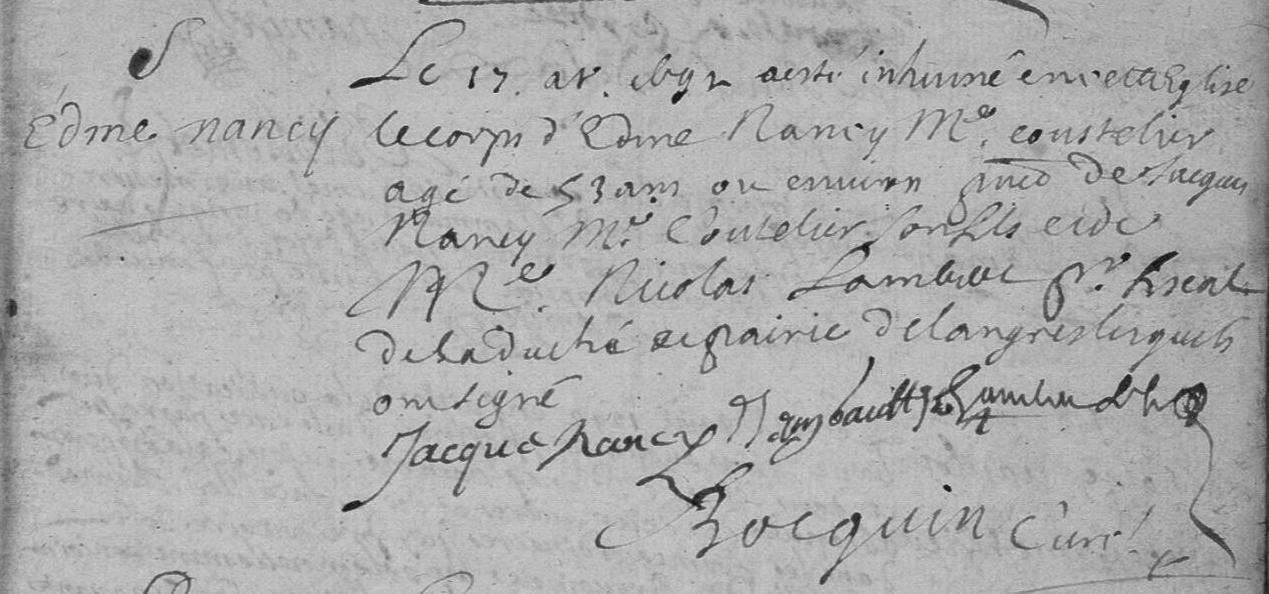 S
Edme nancy
Le 17. a esté inhumé en cette Eglise
le corps d'Edme Nancy Me. coustelier
agé de 53 ans ou environ pnce de Jacques
Nancy Me. Coutelier son fils et de
Me. Nicolas Lambert pr. fiscal
de la duché et pairie de langres lesquels
ont signé
Jacque Nancy
Bocquin Curé